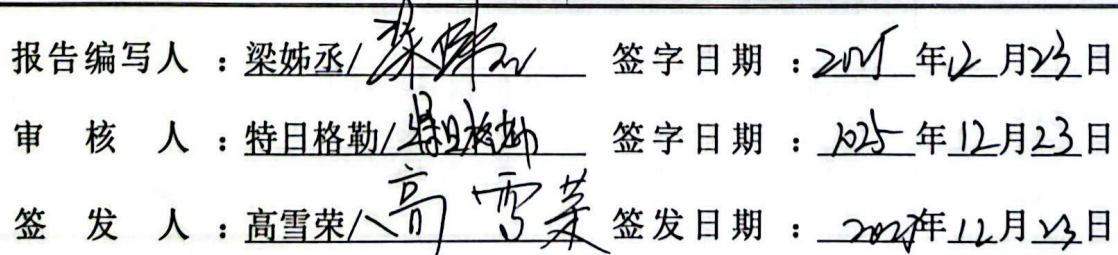 报告编写人：梁姊丞/梁姊丞 签字日期：2025年12月23日
审核人：特日格勒/特日格勒 签字日期：2025年12月23日
签发人：高雪荣/高雪荣 签发日期：2025年12月23日